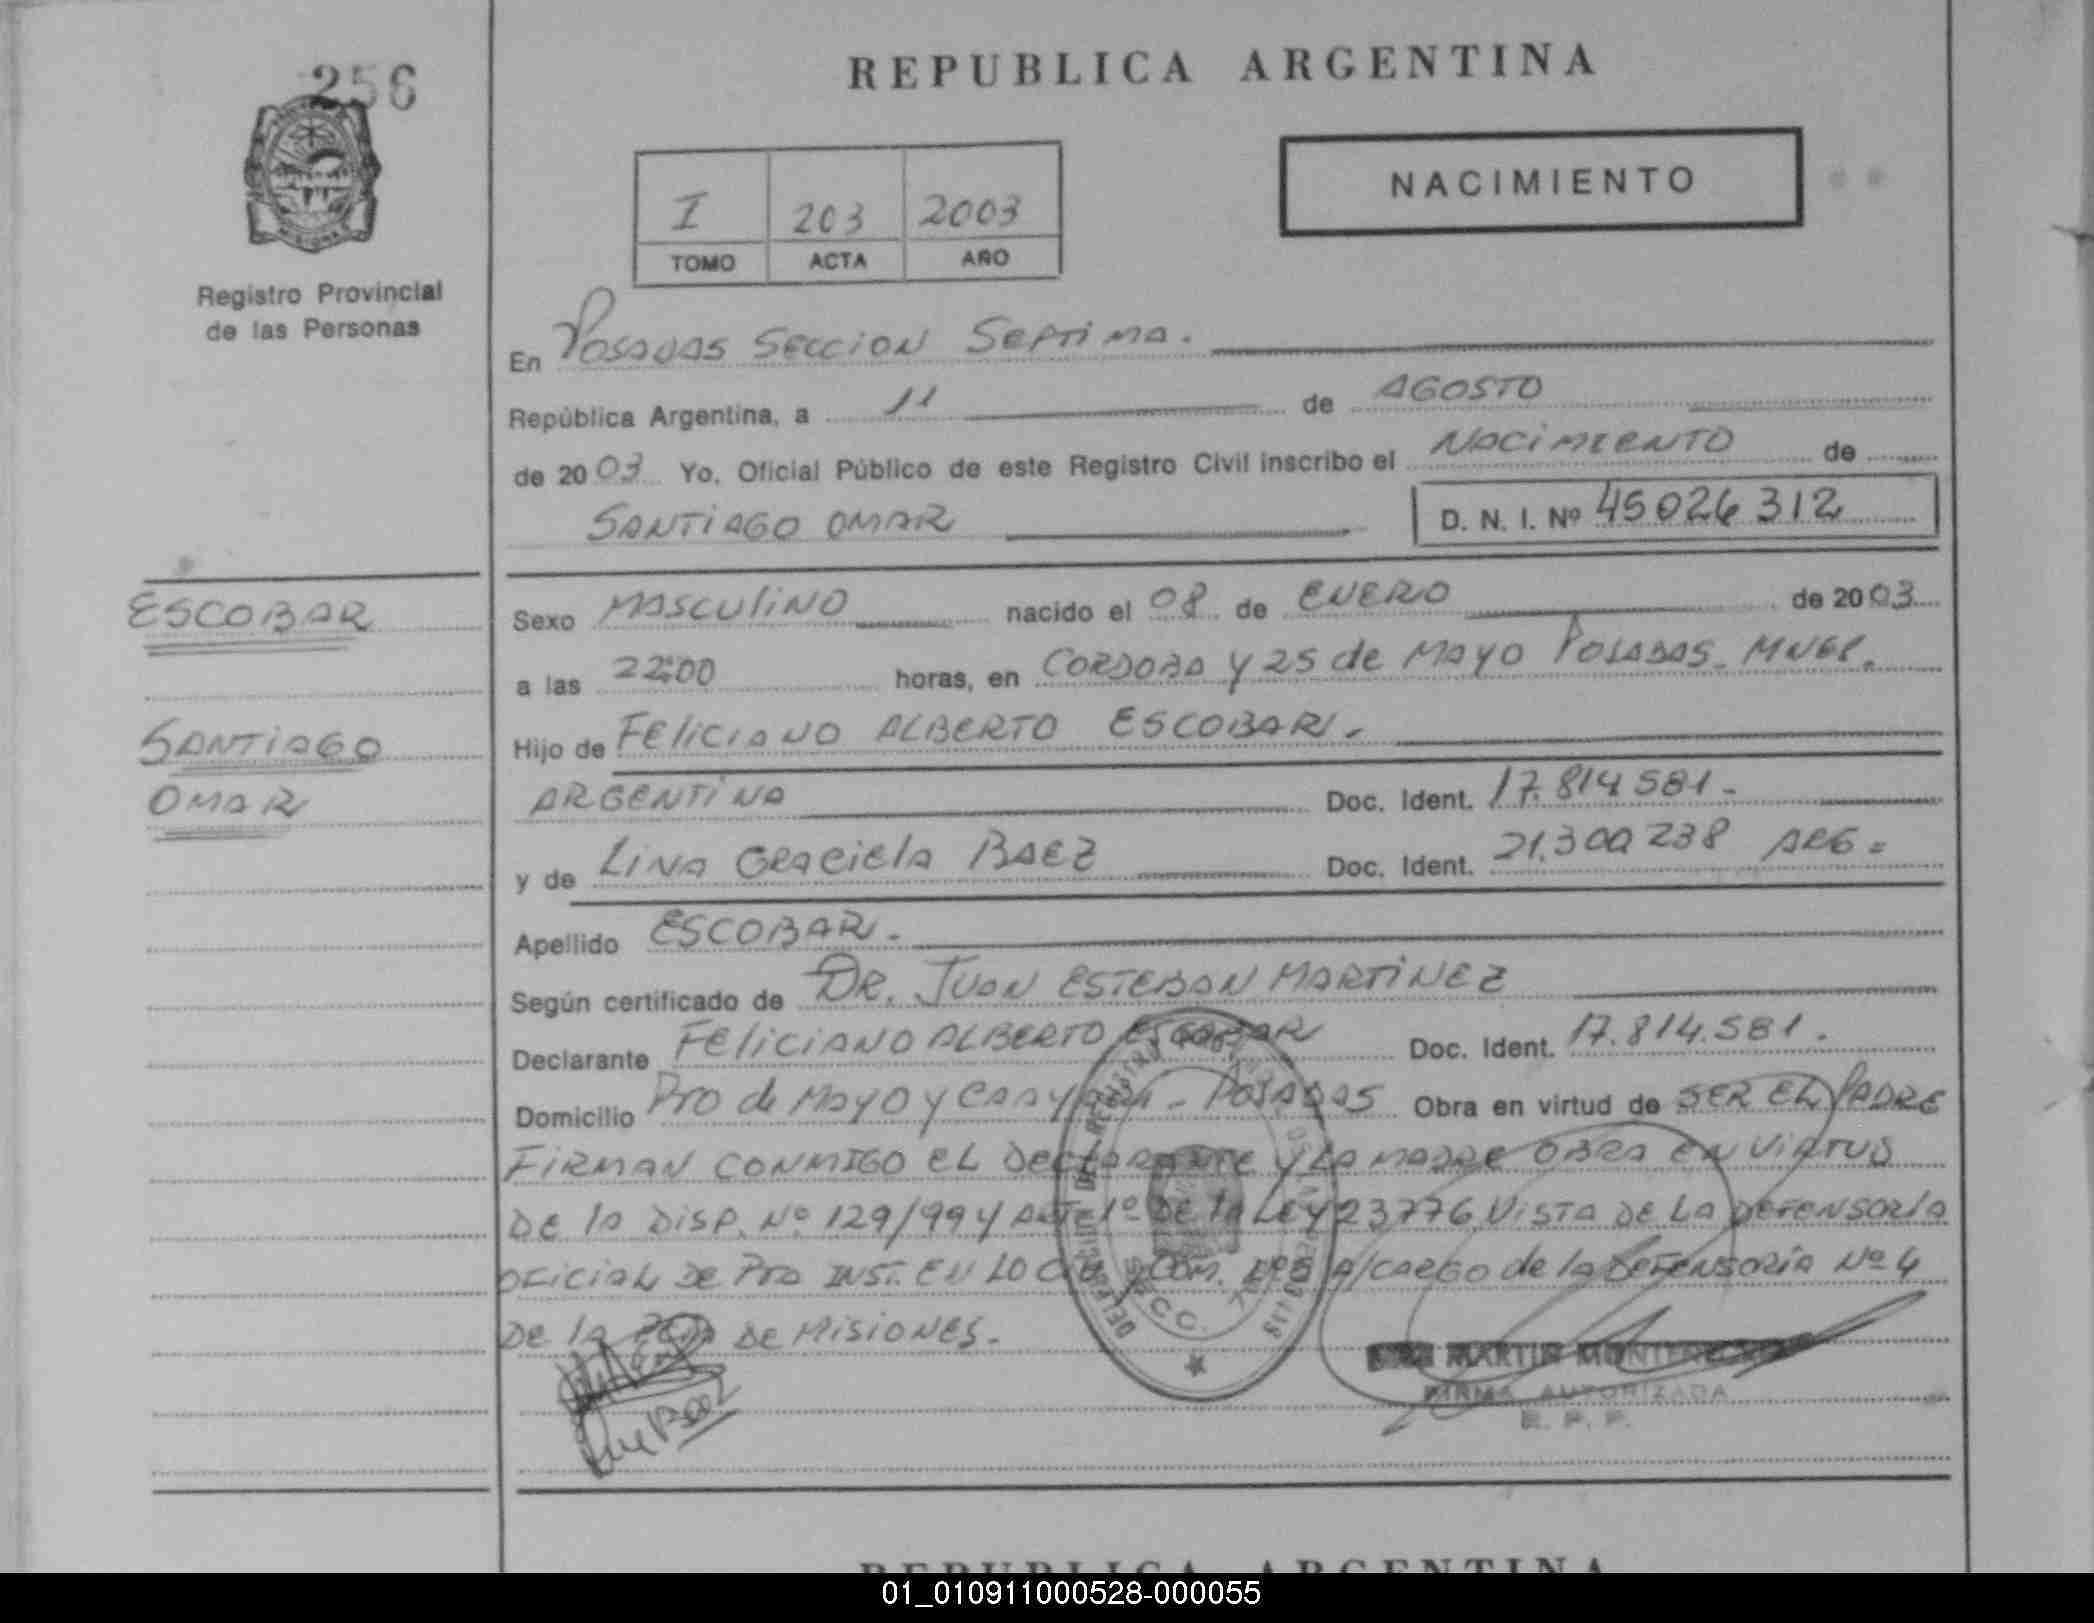 256
REPUBLICA ARGENTINA
I 203 2003
TOMO ACTA AÑO
NACIMIENTO
Registro Provincial
de las Personas
En Posadas Seccion Septima.
República Argentina, a 11 de AGOSTO
de 2003 Yo, Oficial Público de este Registro Civil inscribo el NACIMIENTO de
SANTIAGO OMAR D. N. I. Nº 45026312
ESCOBAR
SANTIAGO
OMAR
Sexo MASCULINO nacido el 08 de ENERO de 2003
a las 22:00 horas, en CORDOBA Y 25 de MAYO POSADAS. MNES.
Hijo de FELICIANO ALBERTO ESCOBAR.
ARGENTINA Doc. Ident. 17.814581.-
y de LINA GRACIELA BAEZ Doc. Ident. 21.300238 ARG=
Apellido ESCOBAR.
Según certificado de DR. JUAN ESTEBAN MARTINEZ
Declarante FELICIANO ALBERTO ESCOBAR Doc. Ident. 17.814.581.
Domicilio Pro de MAYO Y - POSADAS Obra en virtud de SER EL PADRE
FIRMAN CONMIGO EL DECLARANTE Y LA MADRE OBRA EN VIRTUD
DE LA DISP. Nº 129/99 Y ART 1º DE LA LEY 23776 VISTA DE LA DEFENSORIA
OFICIAL DE Pra INST. EN LO Y COM. A/CARGO de la DEFENSORIA Nº 4
DE LA DE MISIONES.
MARTIN
FIRMA AUTORIZADA
R. P. P.
REPUBLICA ARGENTINA
01_010911000528-000055